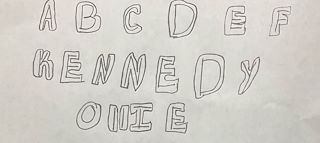 A B C D E F
KENNEDY
OMIE